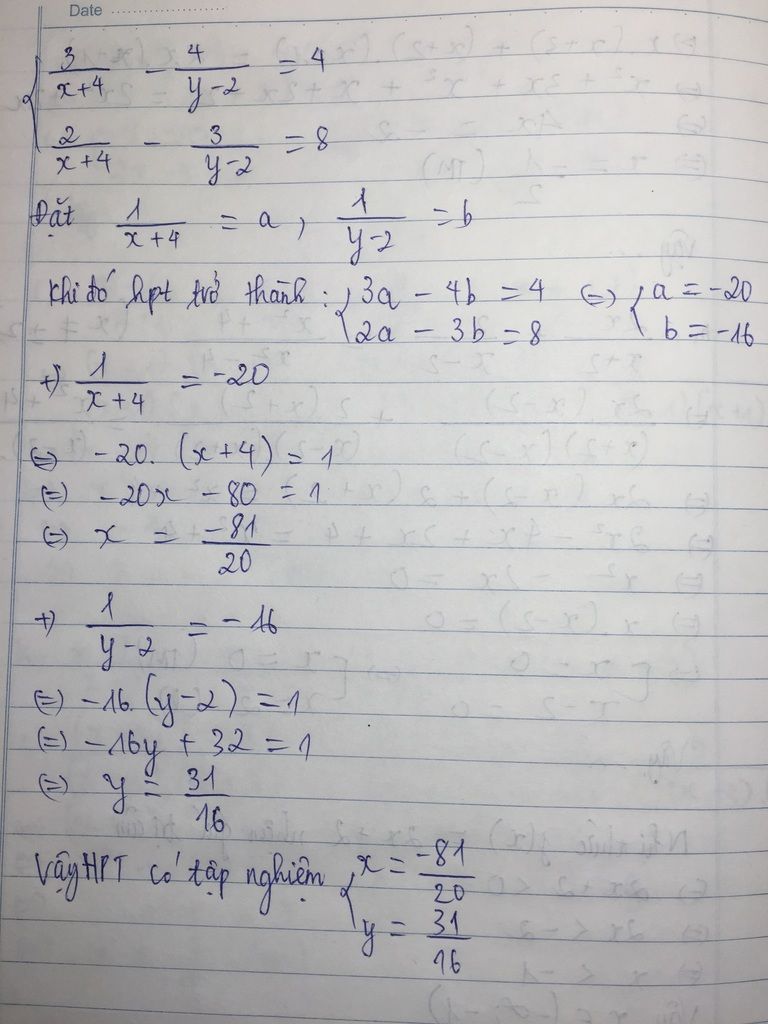 Date
3/(x+4) - 4/(y-2) = 4
2/(x+4) - 3/(y-2) = 8
Đặt 1/(x+4) = a, 1/(y-2) = b
Khi đó hpt trở thành: { 3a - 4b = 4 (=) { a = -20
2a - 3b = 8 b = -16
+) 1/(x+4) = -20
(=) -20. (x+4) = 1
(=) -20x - 80 = 1
(=) x = -81/20
+) 1/(y-2) = -16
(=) -16.(y-2) = 1
(=) -16y + 32 = 1
(=) y = 31/16
Vậy HPT có tập nghiệm { x = -81/20
y = 31/16